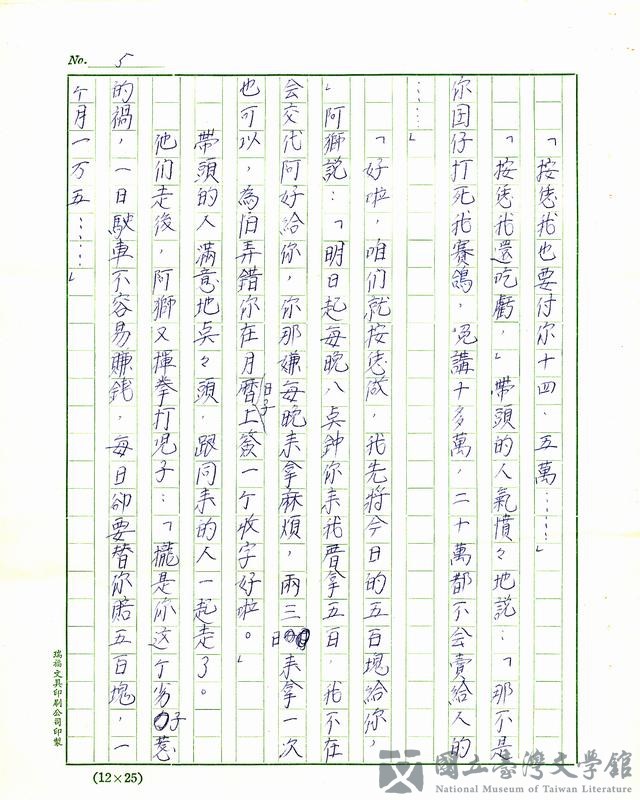 No. 5
「按恁我也要付你十四、五萬……」
「按恁我還吃虧，」帶頭的人氣憤々地說：「那不是
你囝仔打死我賽鴿，免講十多萬，二十萬都不会賣給人的
……」
「好啦，咱们就按恁做，我先将今日的五百塊給你，
」阿獅說：「明日起每晚八点鐘你来我厝拿五百，我不在
会交代阿好給你，你那嫌每晚来拿麻煩，兩三日来拿一次
也可以，為旧弄錯你在月曆上日子簽一个收字好啦。」
帶頭的人滿意地点々頭，跟同来的人一起走了。
他们走後，阿獅又揮拳打児子：「攏是你这个劣子惹
的禍，一日駛車不容易賺錢，每日卻要替你賠五百塊，一
个月一万五……」
瑞福文具印刷公司印製
(12×25)
國立臺灣文學館
National Museum of Taiwan Literature